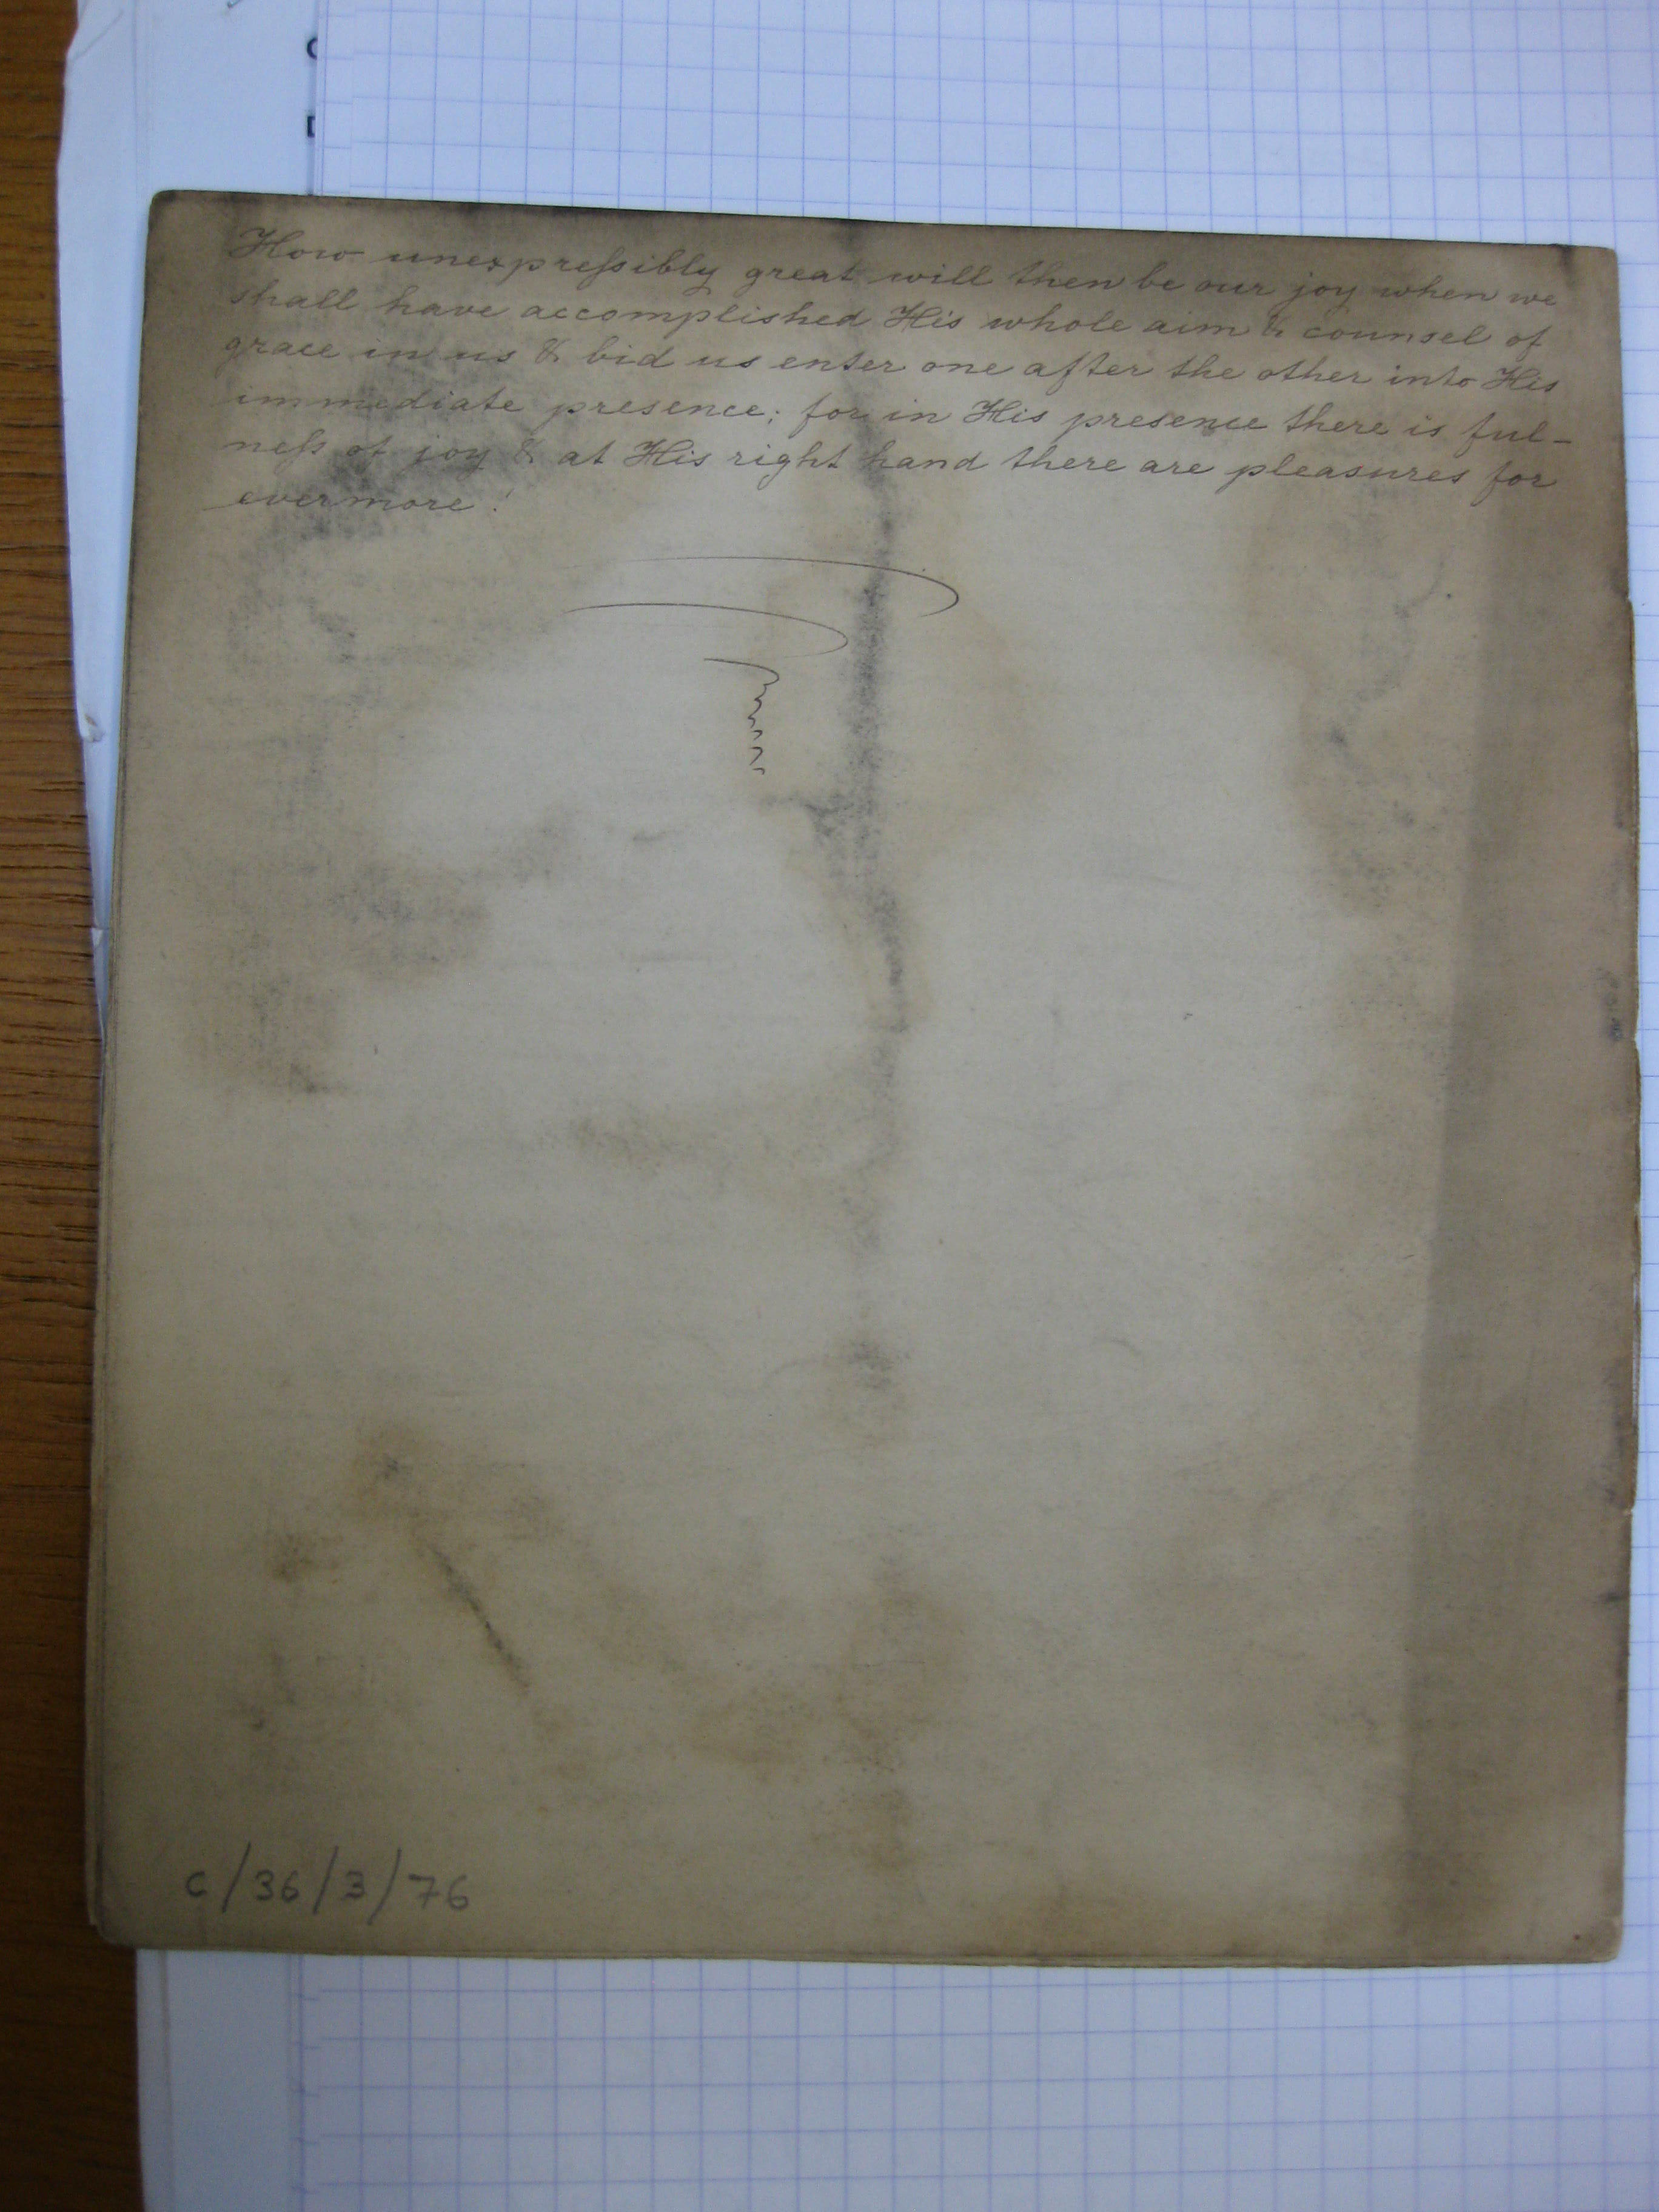 How unexpressibly great will then be our joy when we
shall have accomplished His whole aim & counsel of
grace in us & bid us enter one after the other into His
immediate presence; for in His presence there is ful-
ness of joy & at His right hand there are pleasures for
evermore!
C/36/3/76